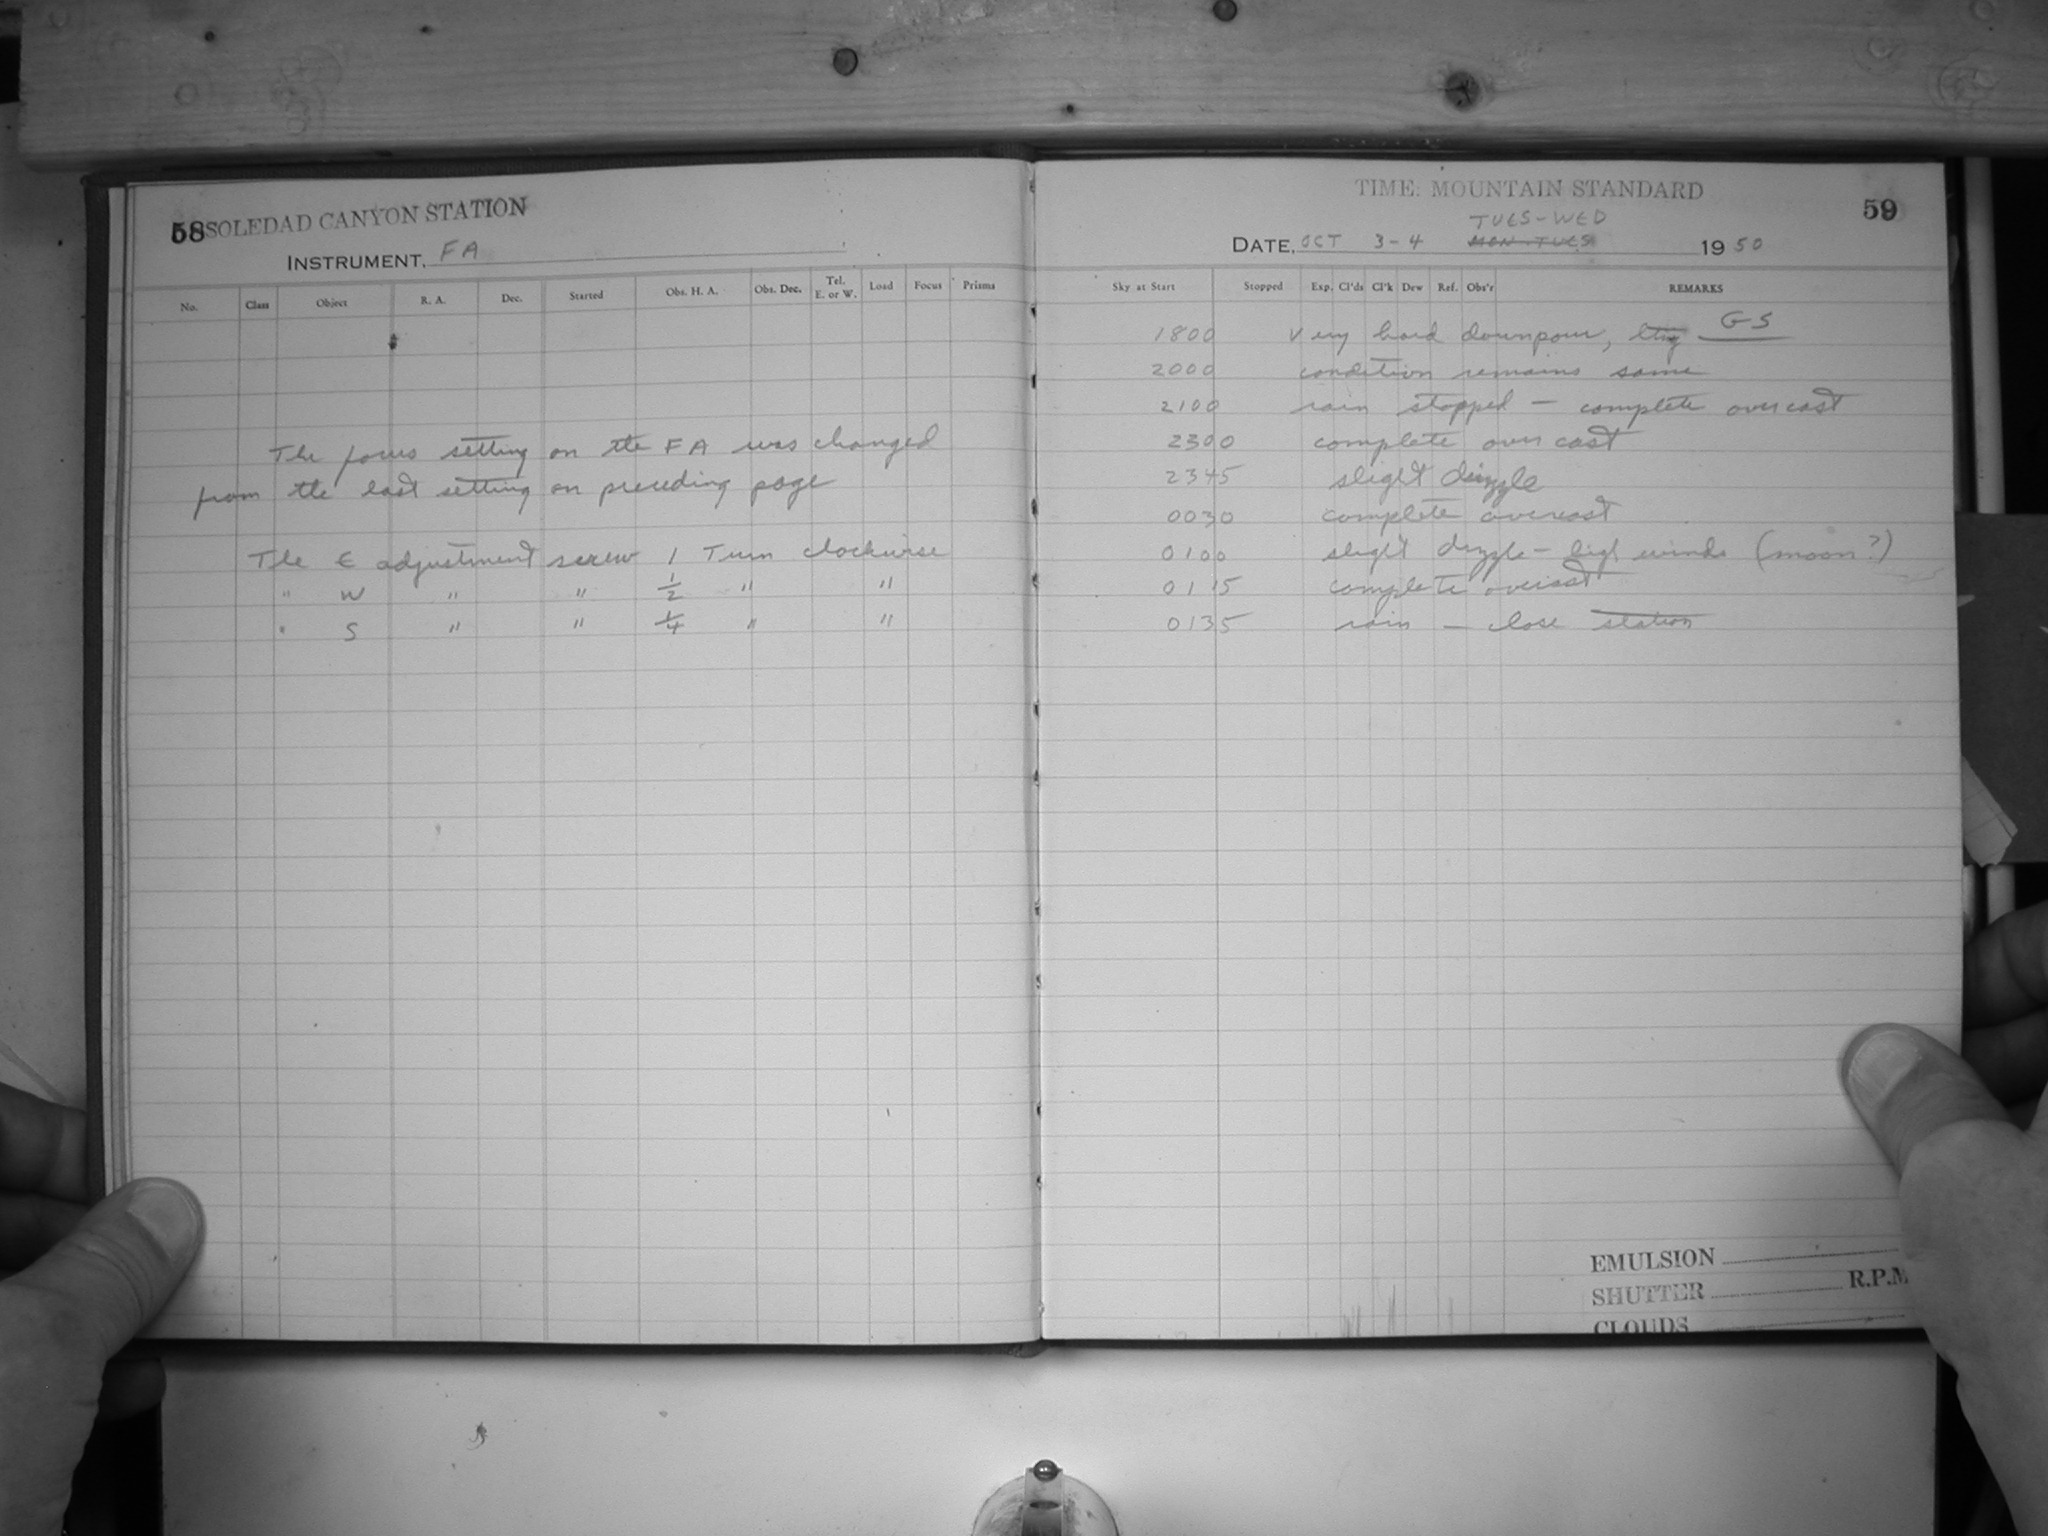 58 SOLEDAD CANYON STATION
INSTRUMENT. FA
No. Class Object R. A. Dec. Started Obs. H. A. Obs. Dec. Tel. E. or W. Load Focus Prisms
The focus setting on the FA was changed
from the last setting on preceding page
The E adjustment screw 1 Turn clockwise
" W " " 1/2 " "
" S " " 1/4 " "
TIME: MOUNTAIN STANDARD
59
TUES-WED
DATE, OCT 3-4 MON-TUES 1950
Sky at Start Stopped Exp. Cl'ds Cl'k Dew Ref. Obs'r REMARKS
GS
1800 Very hard downpour,
2000 condition remains same
2100 rain stopped - complete overcast
2300 complete over cast
2345 slight drizzle
0030 complete overcast
0100 slight drizzle - high winds (moon?)
0115 complete overcast
0135 rain - close station
EMULSION
SHUTTER R.P.M
CLOUDS